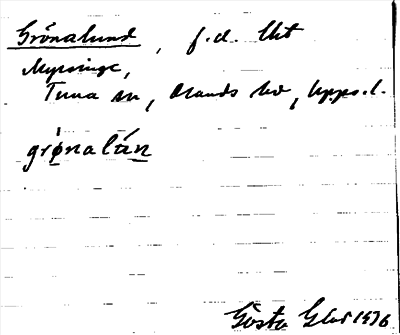 Grönalund, f.d. lht
Myrsinge,
Tuna sn, Olands hd, Upps.l.
grønalún
Gösta Glas 1976